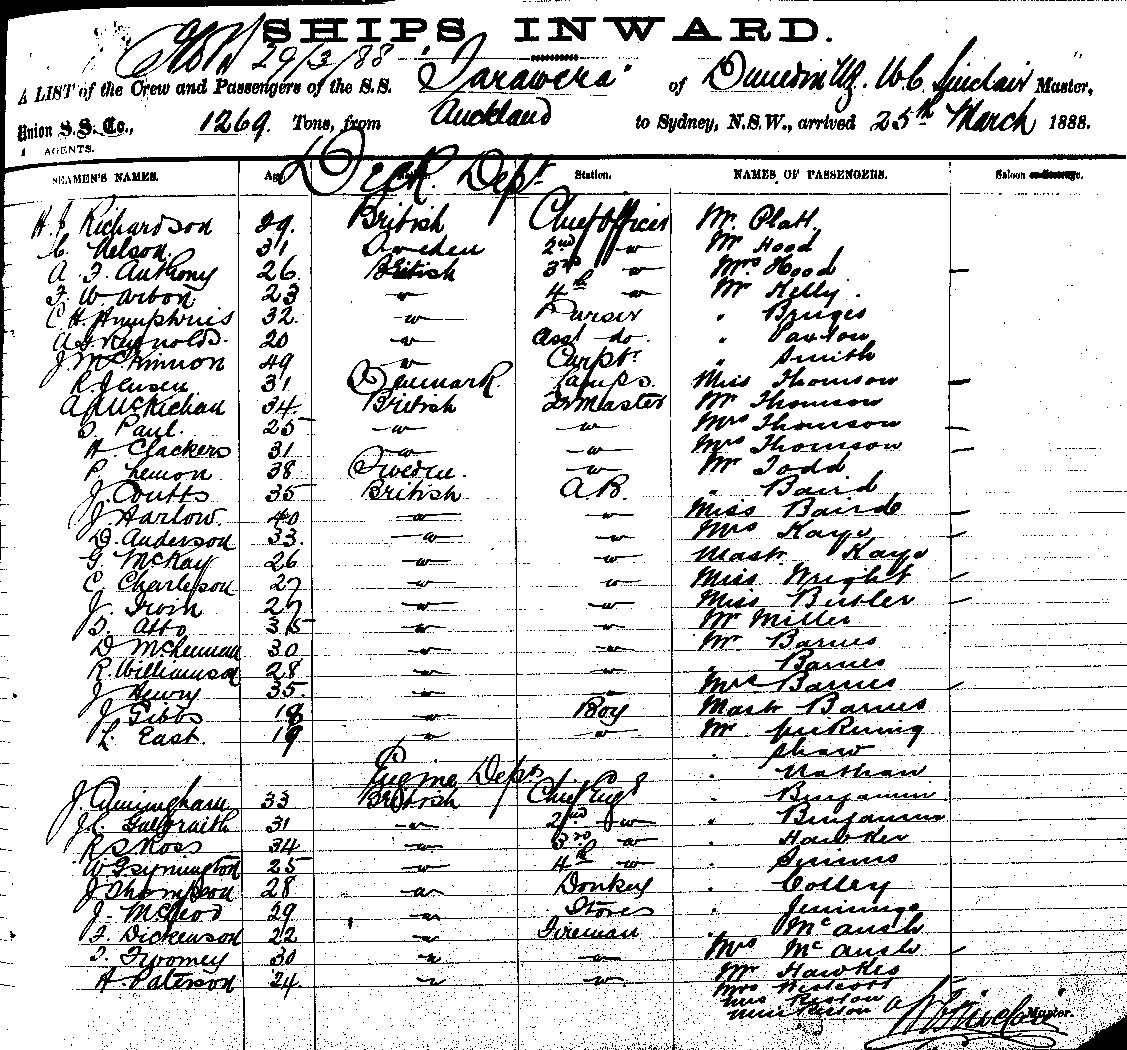 SHIPS INWARD.
29/3/88
A LIST of the Crew and Passengers of the S.S. "Tarawera" of Dunedin NZ. W.C. Sinclair Master,
Union S.S. Co., 1269. Tons, from Auckland to Sydney, N.S.W., arrived 25th March 1888.
AGENTS.
Deck Dept
SEAMEN'S NAMES. Age Station. NAMES OF PASSENGERS. Saloon
H. J. Richardson 29. British Chief Officer Mr. Platt.
C. Nelson 31 Sweden 2nd " Mr Hood
A. F. Anthony 26. British 3rd " Mrs Hood —
F. W. Arbon 23 " 4th " Mr Kelly.
C. H. Humphris 32. " Purser " Bruges
A. J. Reynolds. 20 " Asst do. " Paxton
J. McKinnon 49 " Carptr " Smith
R. Jensen 31 Denmark. Lamps. Miss Thomson —
A. McKichan 34. British Mr Thomson
Paul. 25 " " Mrs Thomson —
H. Clackers 31 " " Mrs Thomson —
P. Lemon 38 Sweden. " Mr Todd
J. Coutts 35 British A.B. " Baird
J. Harlow. 40 " " Miss Baird —
D. Anderson 33. " " Mrs Kaye —
G. McKay 26 " " Mastr Kaye
C. Charleson 27 " " Miss Wright —
J. Irvin 27 " " Miss Butler —
Atto 35 " " Mr Miller
D McLennan 30 " " Mr Barnes
R. Williamson 28 " " " Barnes
J. Henry 35. " " Mrs Barnes —
J. Gibbs 18 " Boy Mastr Barnes
L. East. 19 " " Mr Pickering
" Shaw
Engine Dept " Nathan
J. Cunningham 33 British Chief Engr " Benjamin
J. C. Galbraith 31 " 2nd " " Benjamin
R S Ross 34 " 3rd " " Hawker
W Gsymington 25 " 4th " " Simms
J. Thompson 28 " Donkey " Colley
J. McLeod 29 " Stores " Jennings
F. Dickenson 22 " Fireman " McAush
T. Twomey 30 " " Mrs McAush —
A. Paterson 24. " " Mr Hawkes
Mrs Westcott
Mrs Reston
Miss Reston
W C Sinclair Master.